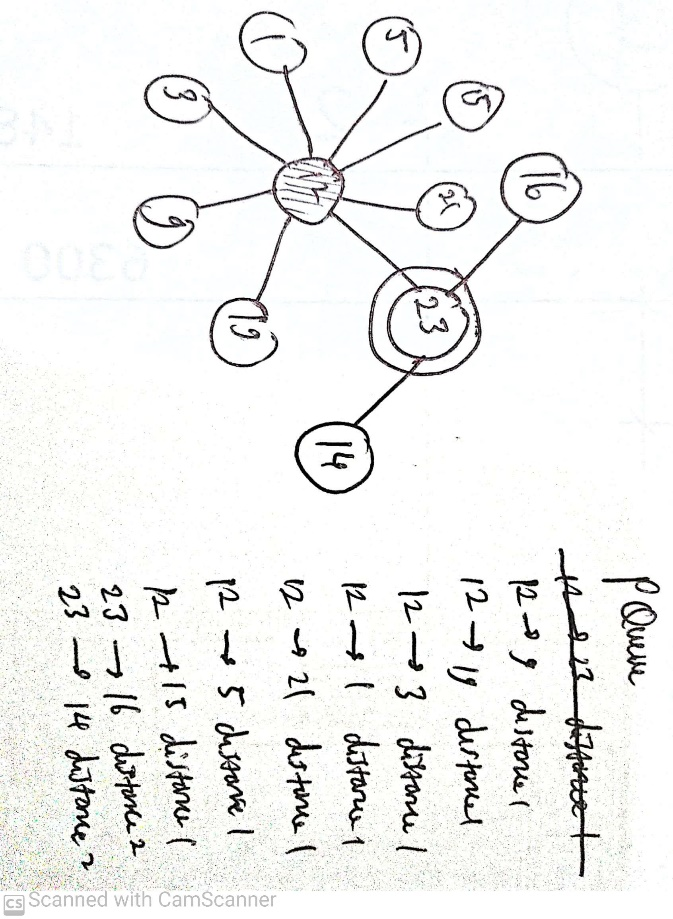 1
5
15
3
12
21
16
9
23
19
14
P Queue
12 → 23 distance 1
12 → 9 distance 1
12 → 19 distance 1
12 → 3 distance 1
12 → 1 distance 1
12 → 21 distance 1
12 → 5 distance 1
12 → 15 distance 1
23 → 16 distance 2
23 → 14 distance 2
148
6300
CS Scanned with CamScanner